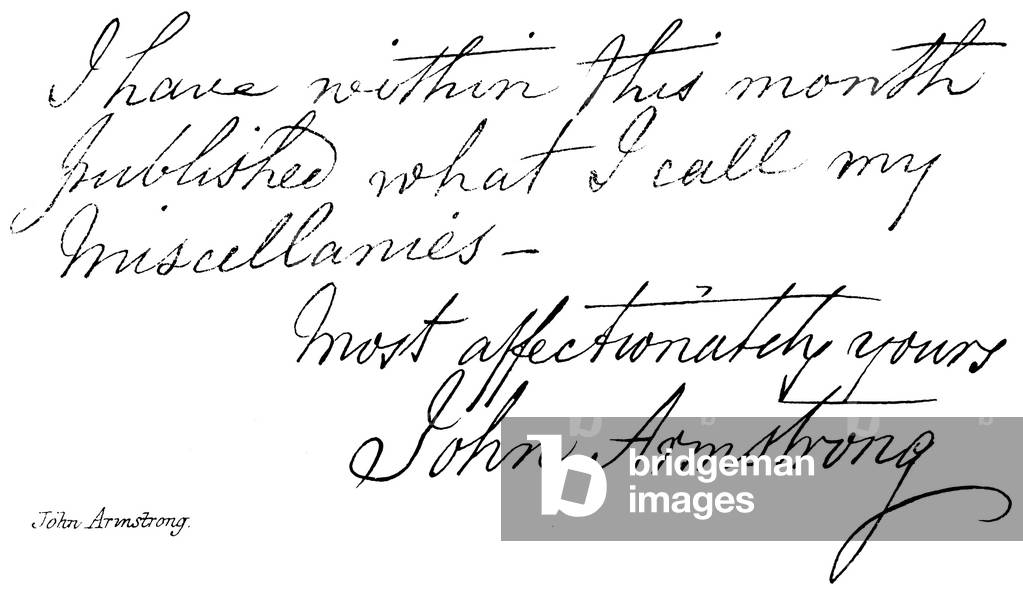 I have within this month
published what I call my
Miscellanies –
Most affectionately yours
John Armstrong
bridgeman
images
John Armstrong.